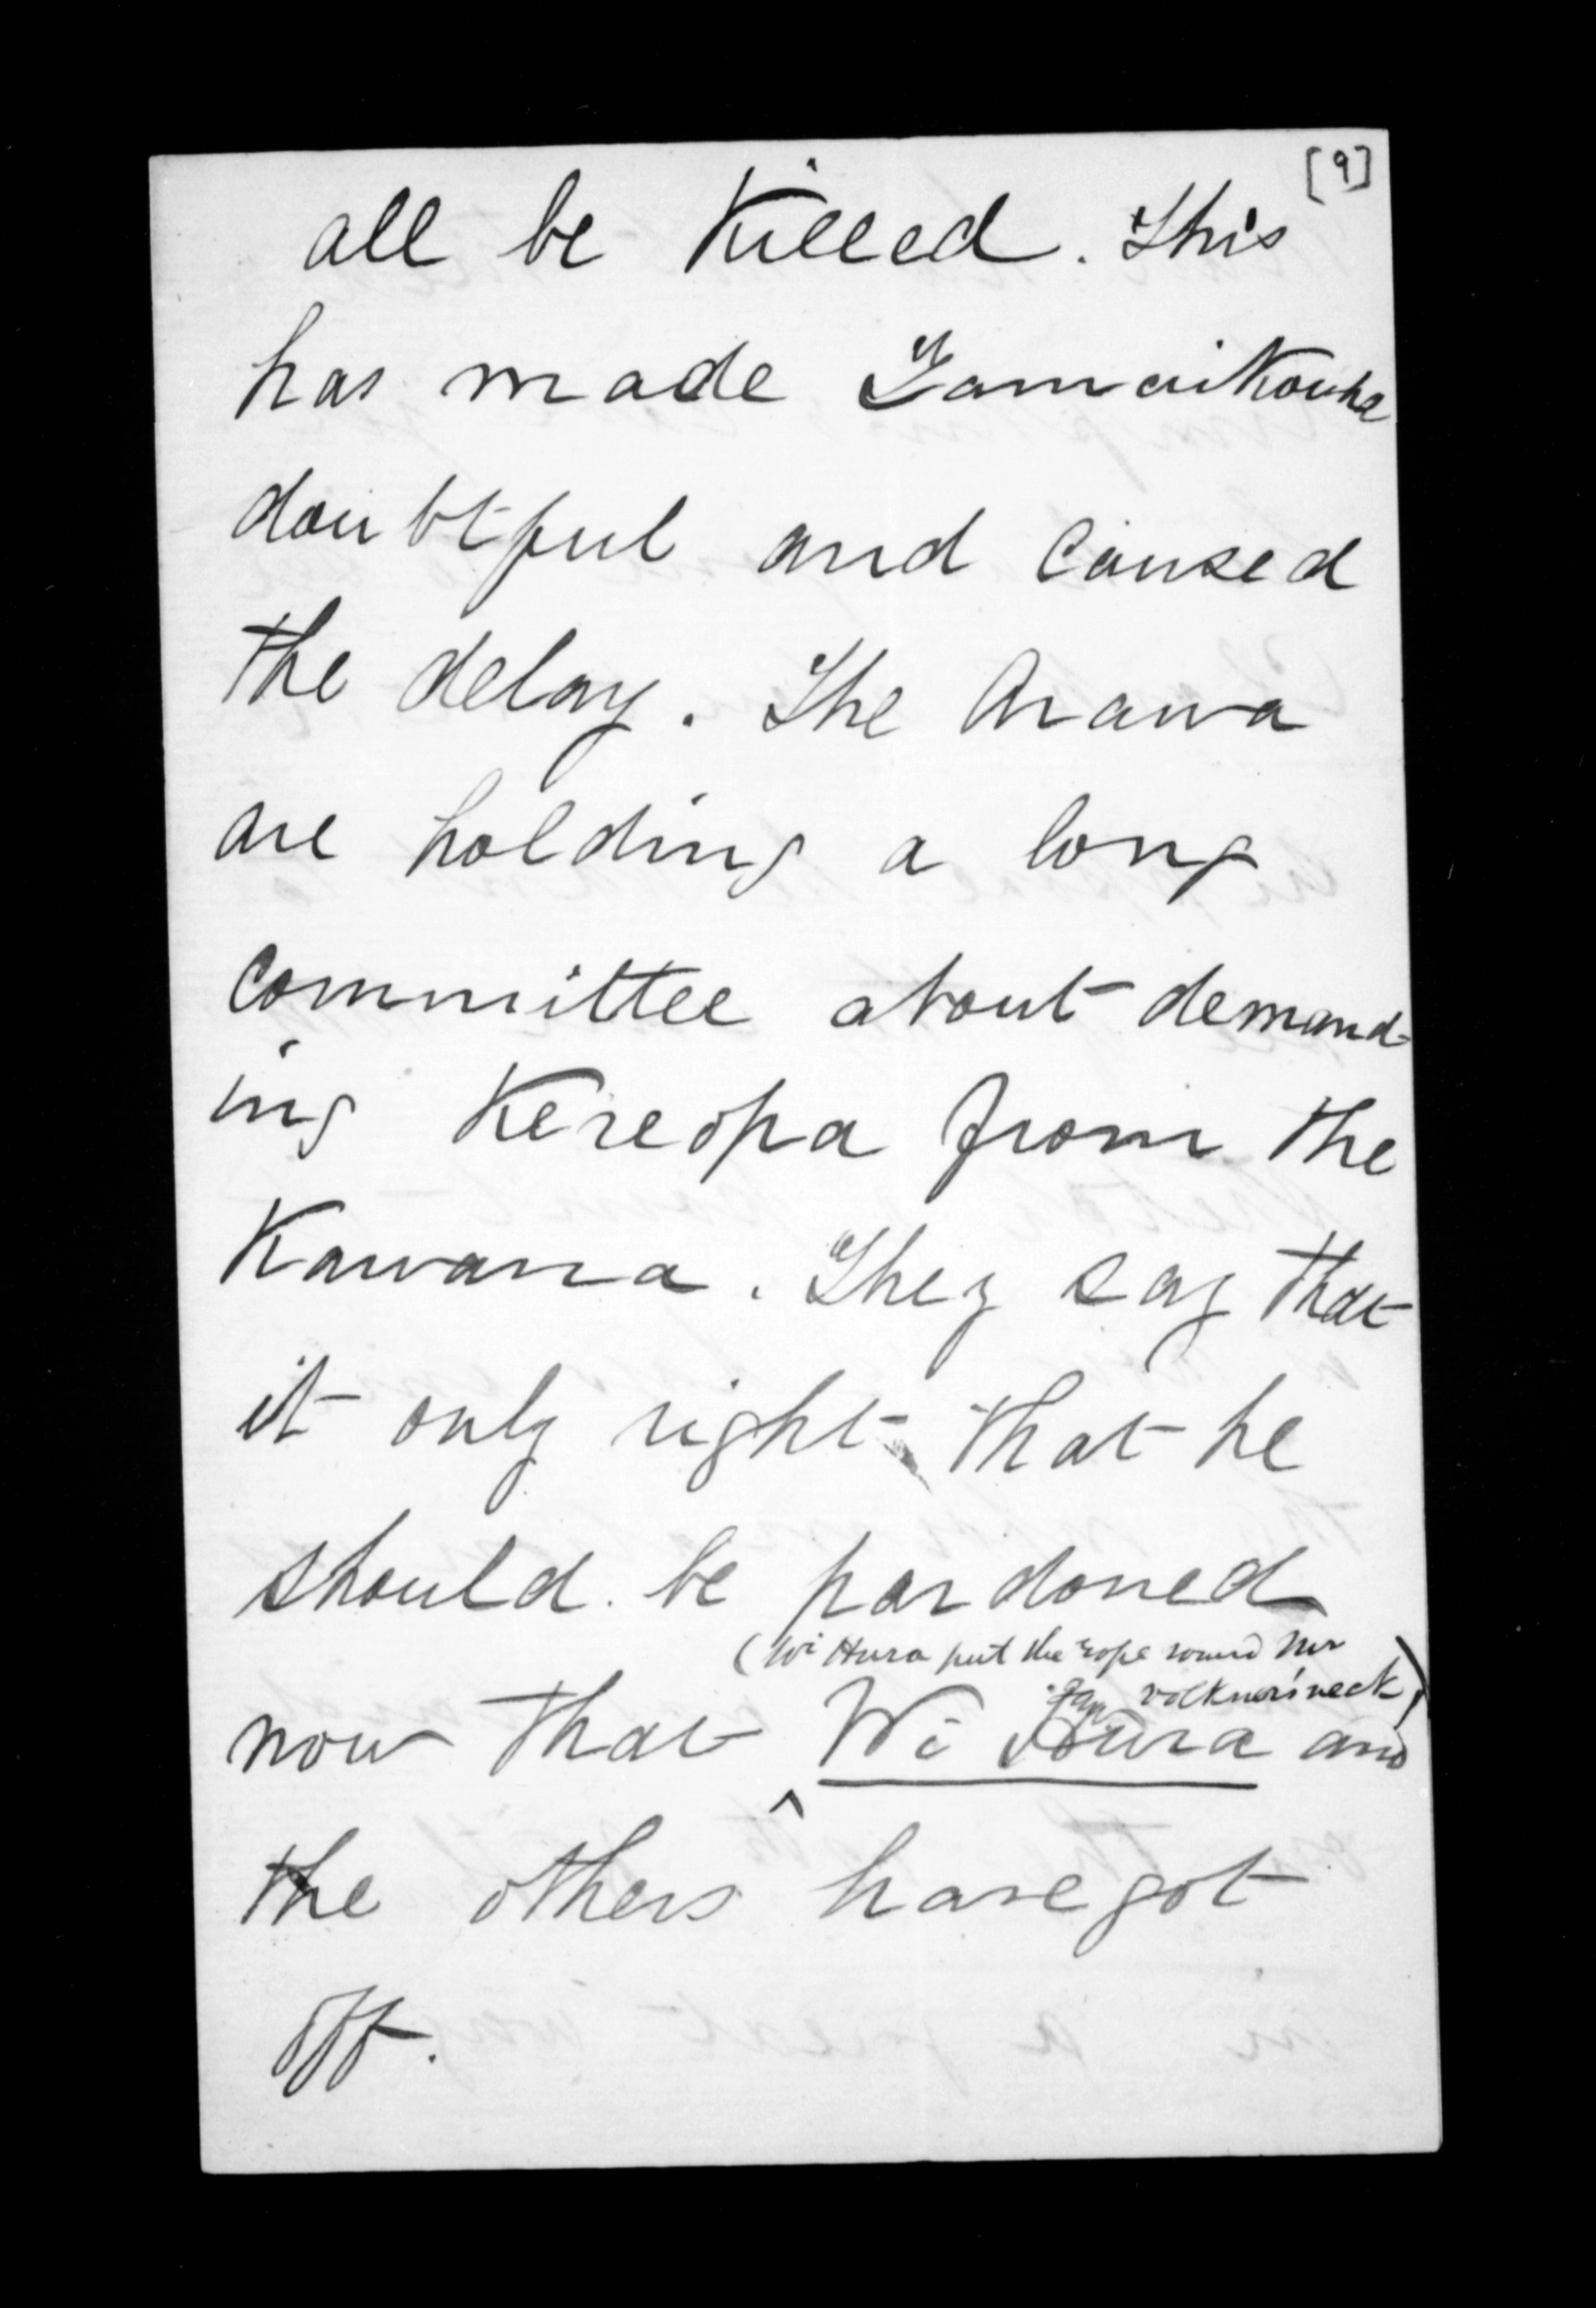 [9]
all be Killed. This
has made Tamaikowha
doubtful and caused
the delay. The Arawa
are holding a long
Committee about demand-
ing Kereopa from the
Kawana. They say that
it only right that he
should be pardoned
(Wi Hura put the rope round Mr
Volkner's neck)
now that Wi Hura and
the others have got
off.